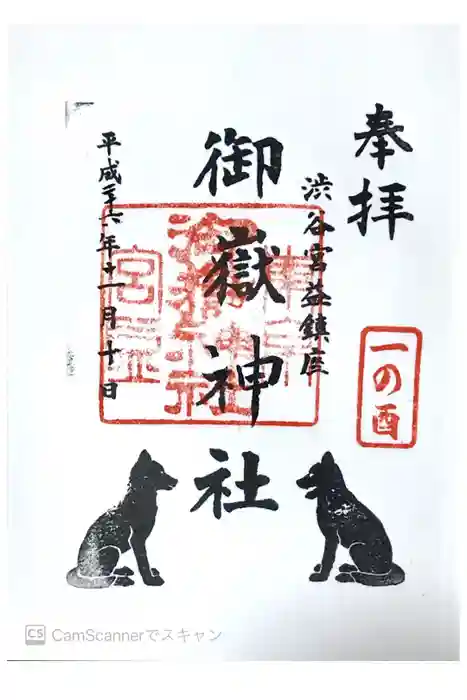 奉拝
一の酉
渋谷宮益鎮座
御嶽神社
平成二十六年十一月十日
宮益
CS CamScannerでスキャン